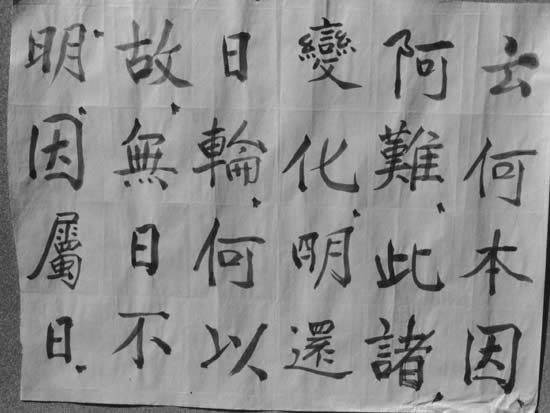 云何本因
阿難此諸
變化明還
日輪何以
故無日不
明因屬日